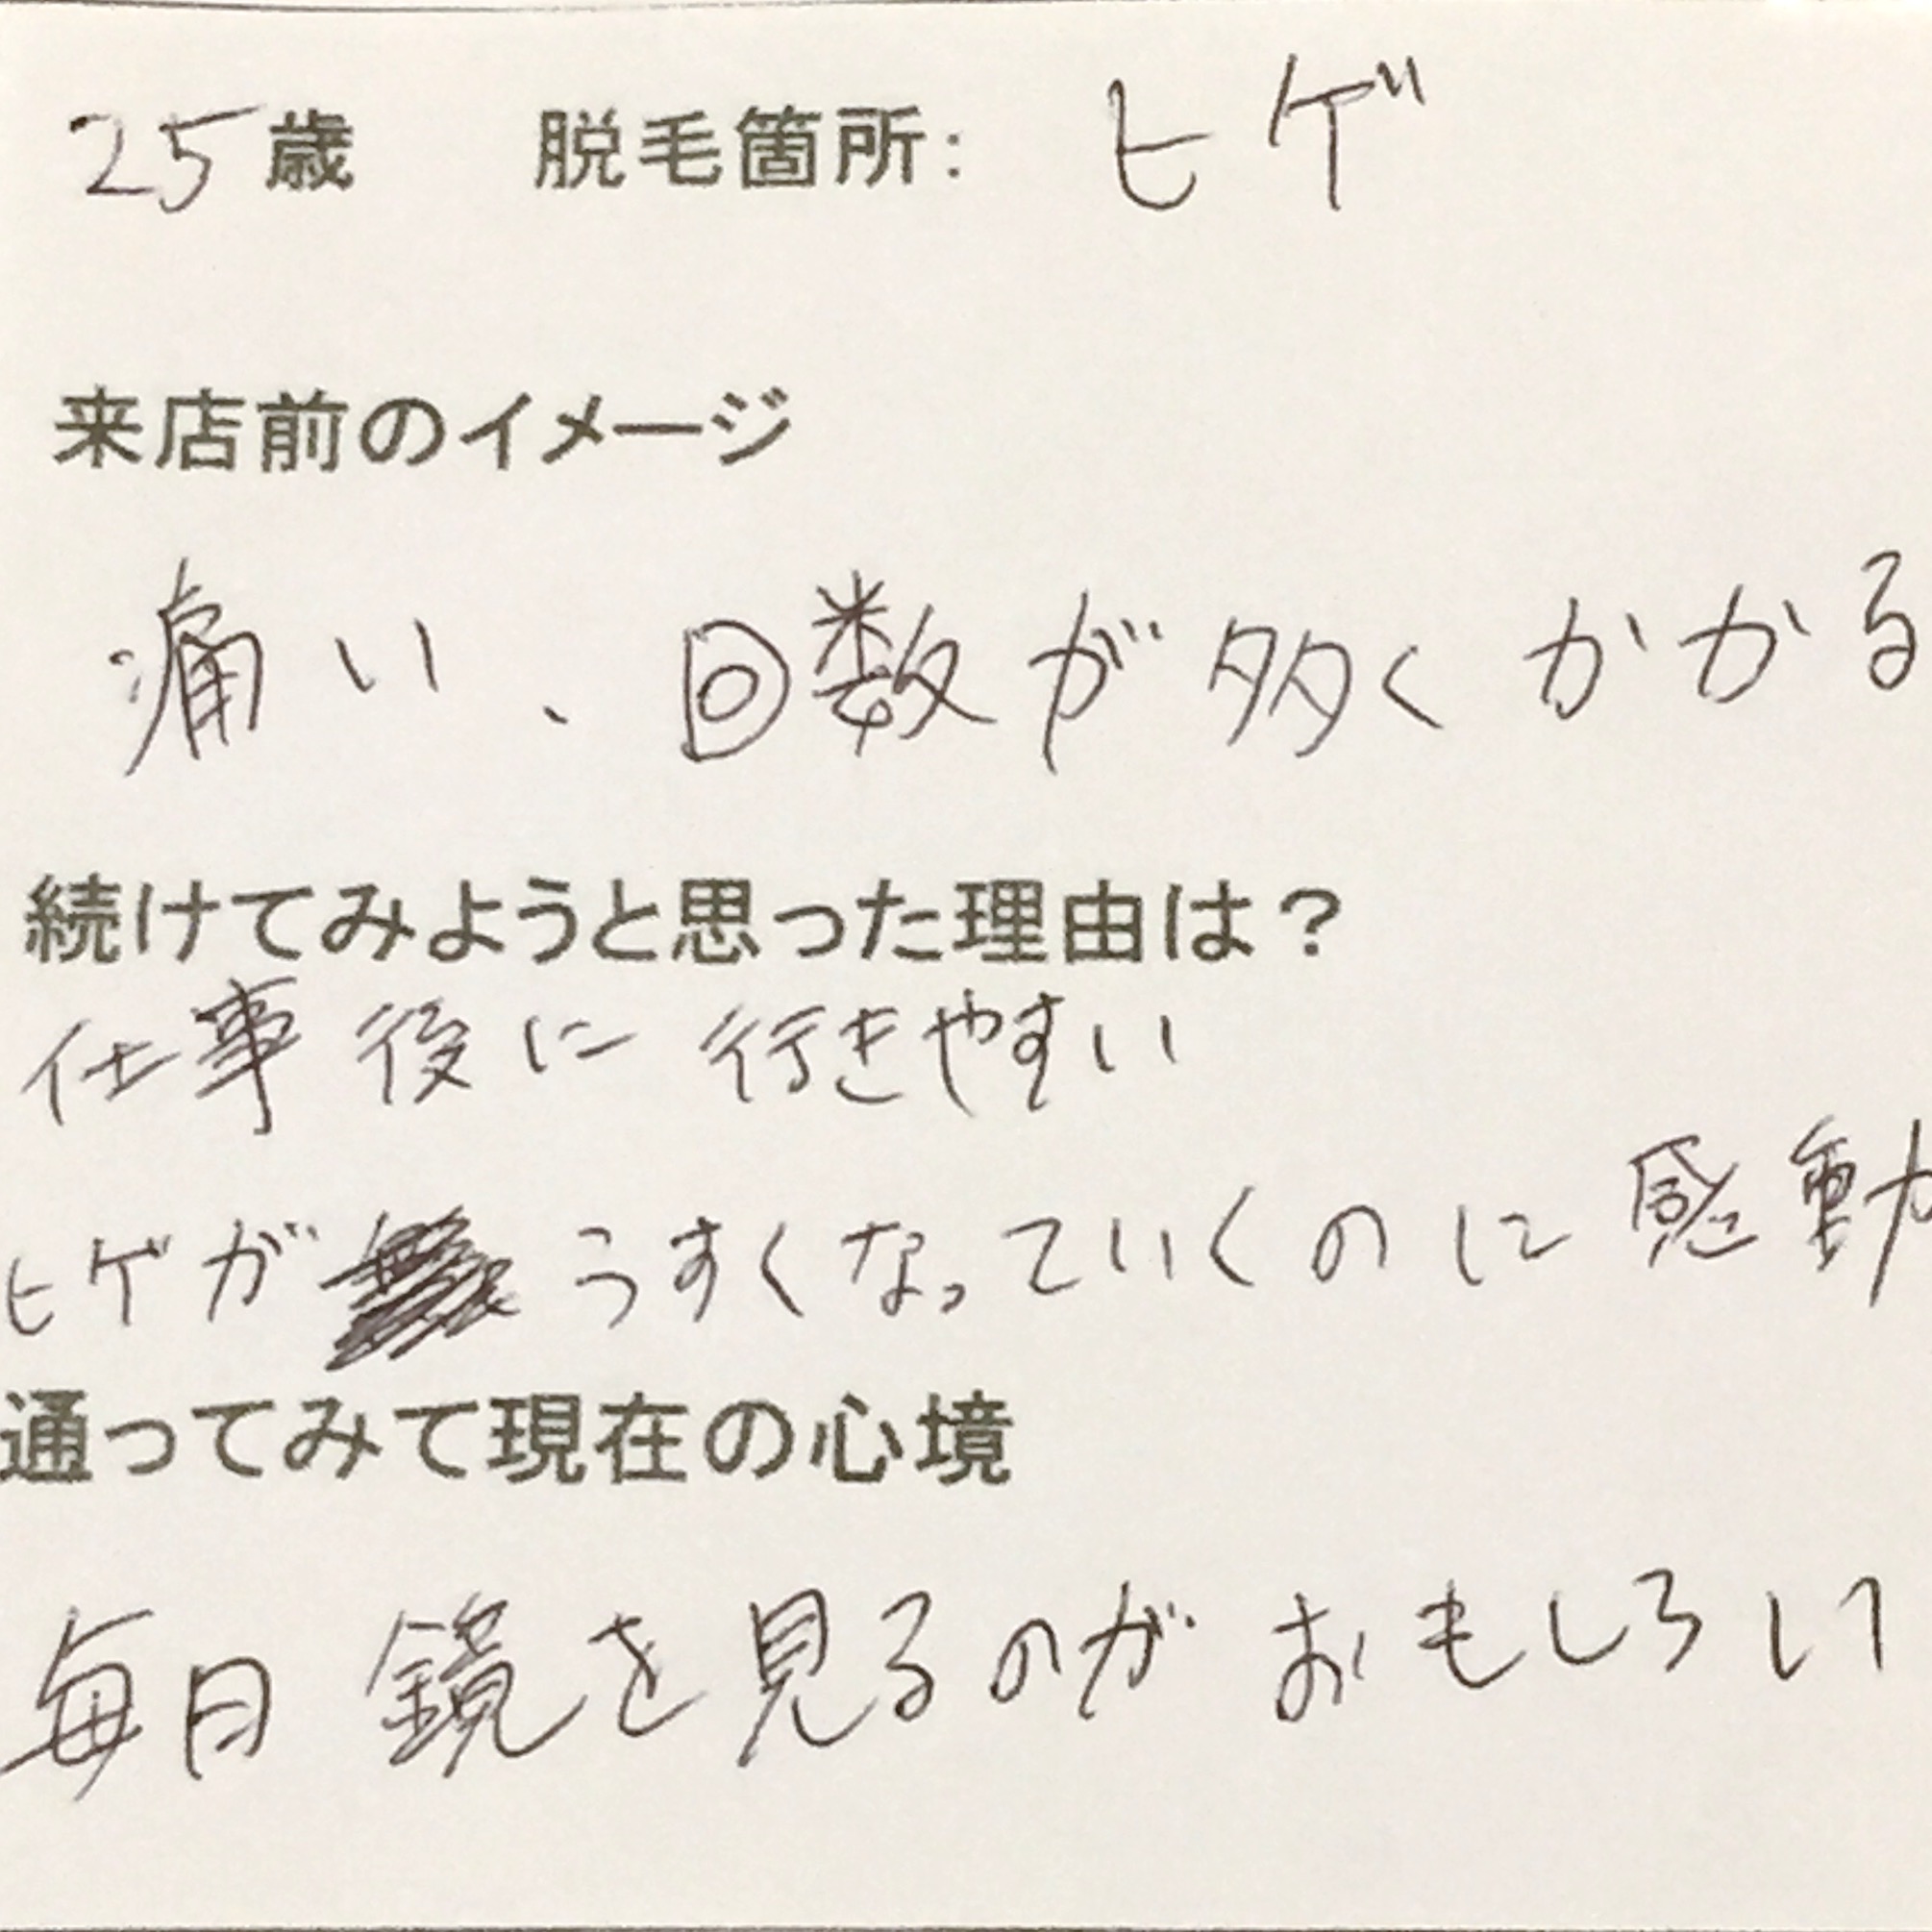 25歳 脱毛箇所: ヒゲ
来店前のイメージ
痛い、回数が多くかかる
続けてみようと思った理由は?
仕事後に行きやすい
ヒゲがうすくなっていくのに感動
通ってみて現在の心境
毎日鏡を見るのがおもしろい